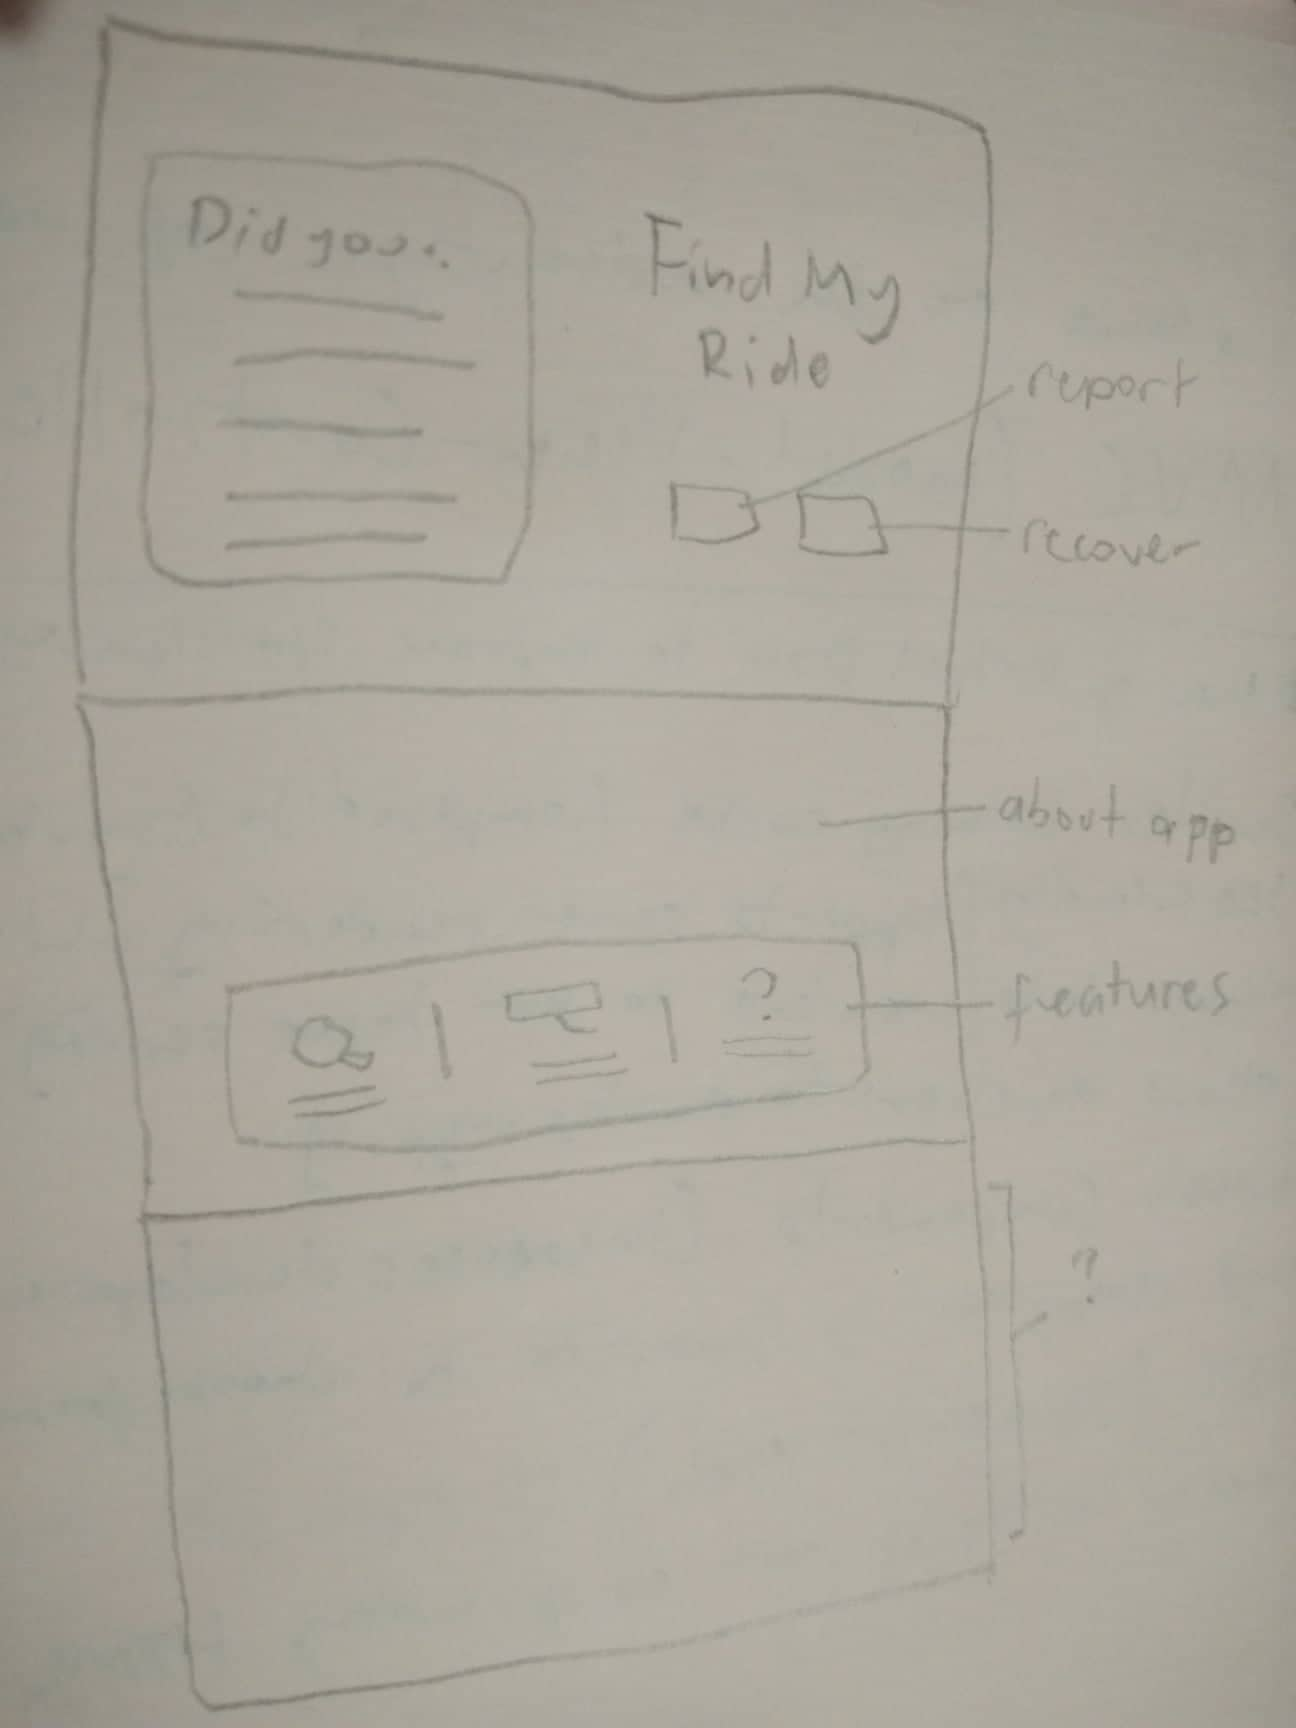 Did you..
Find My
Ride
report
recover
about app
?
features
?